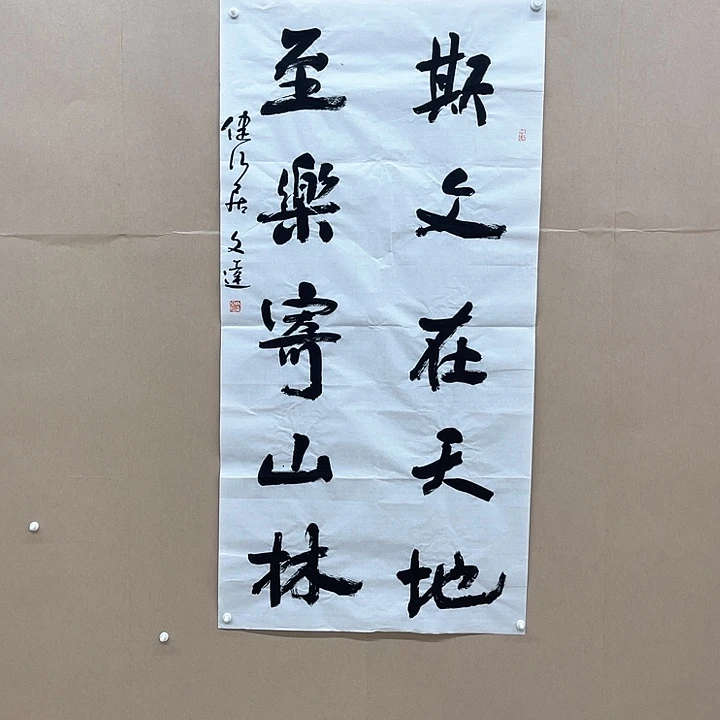 斯文在天地
至樂寄山林
健行居 文達